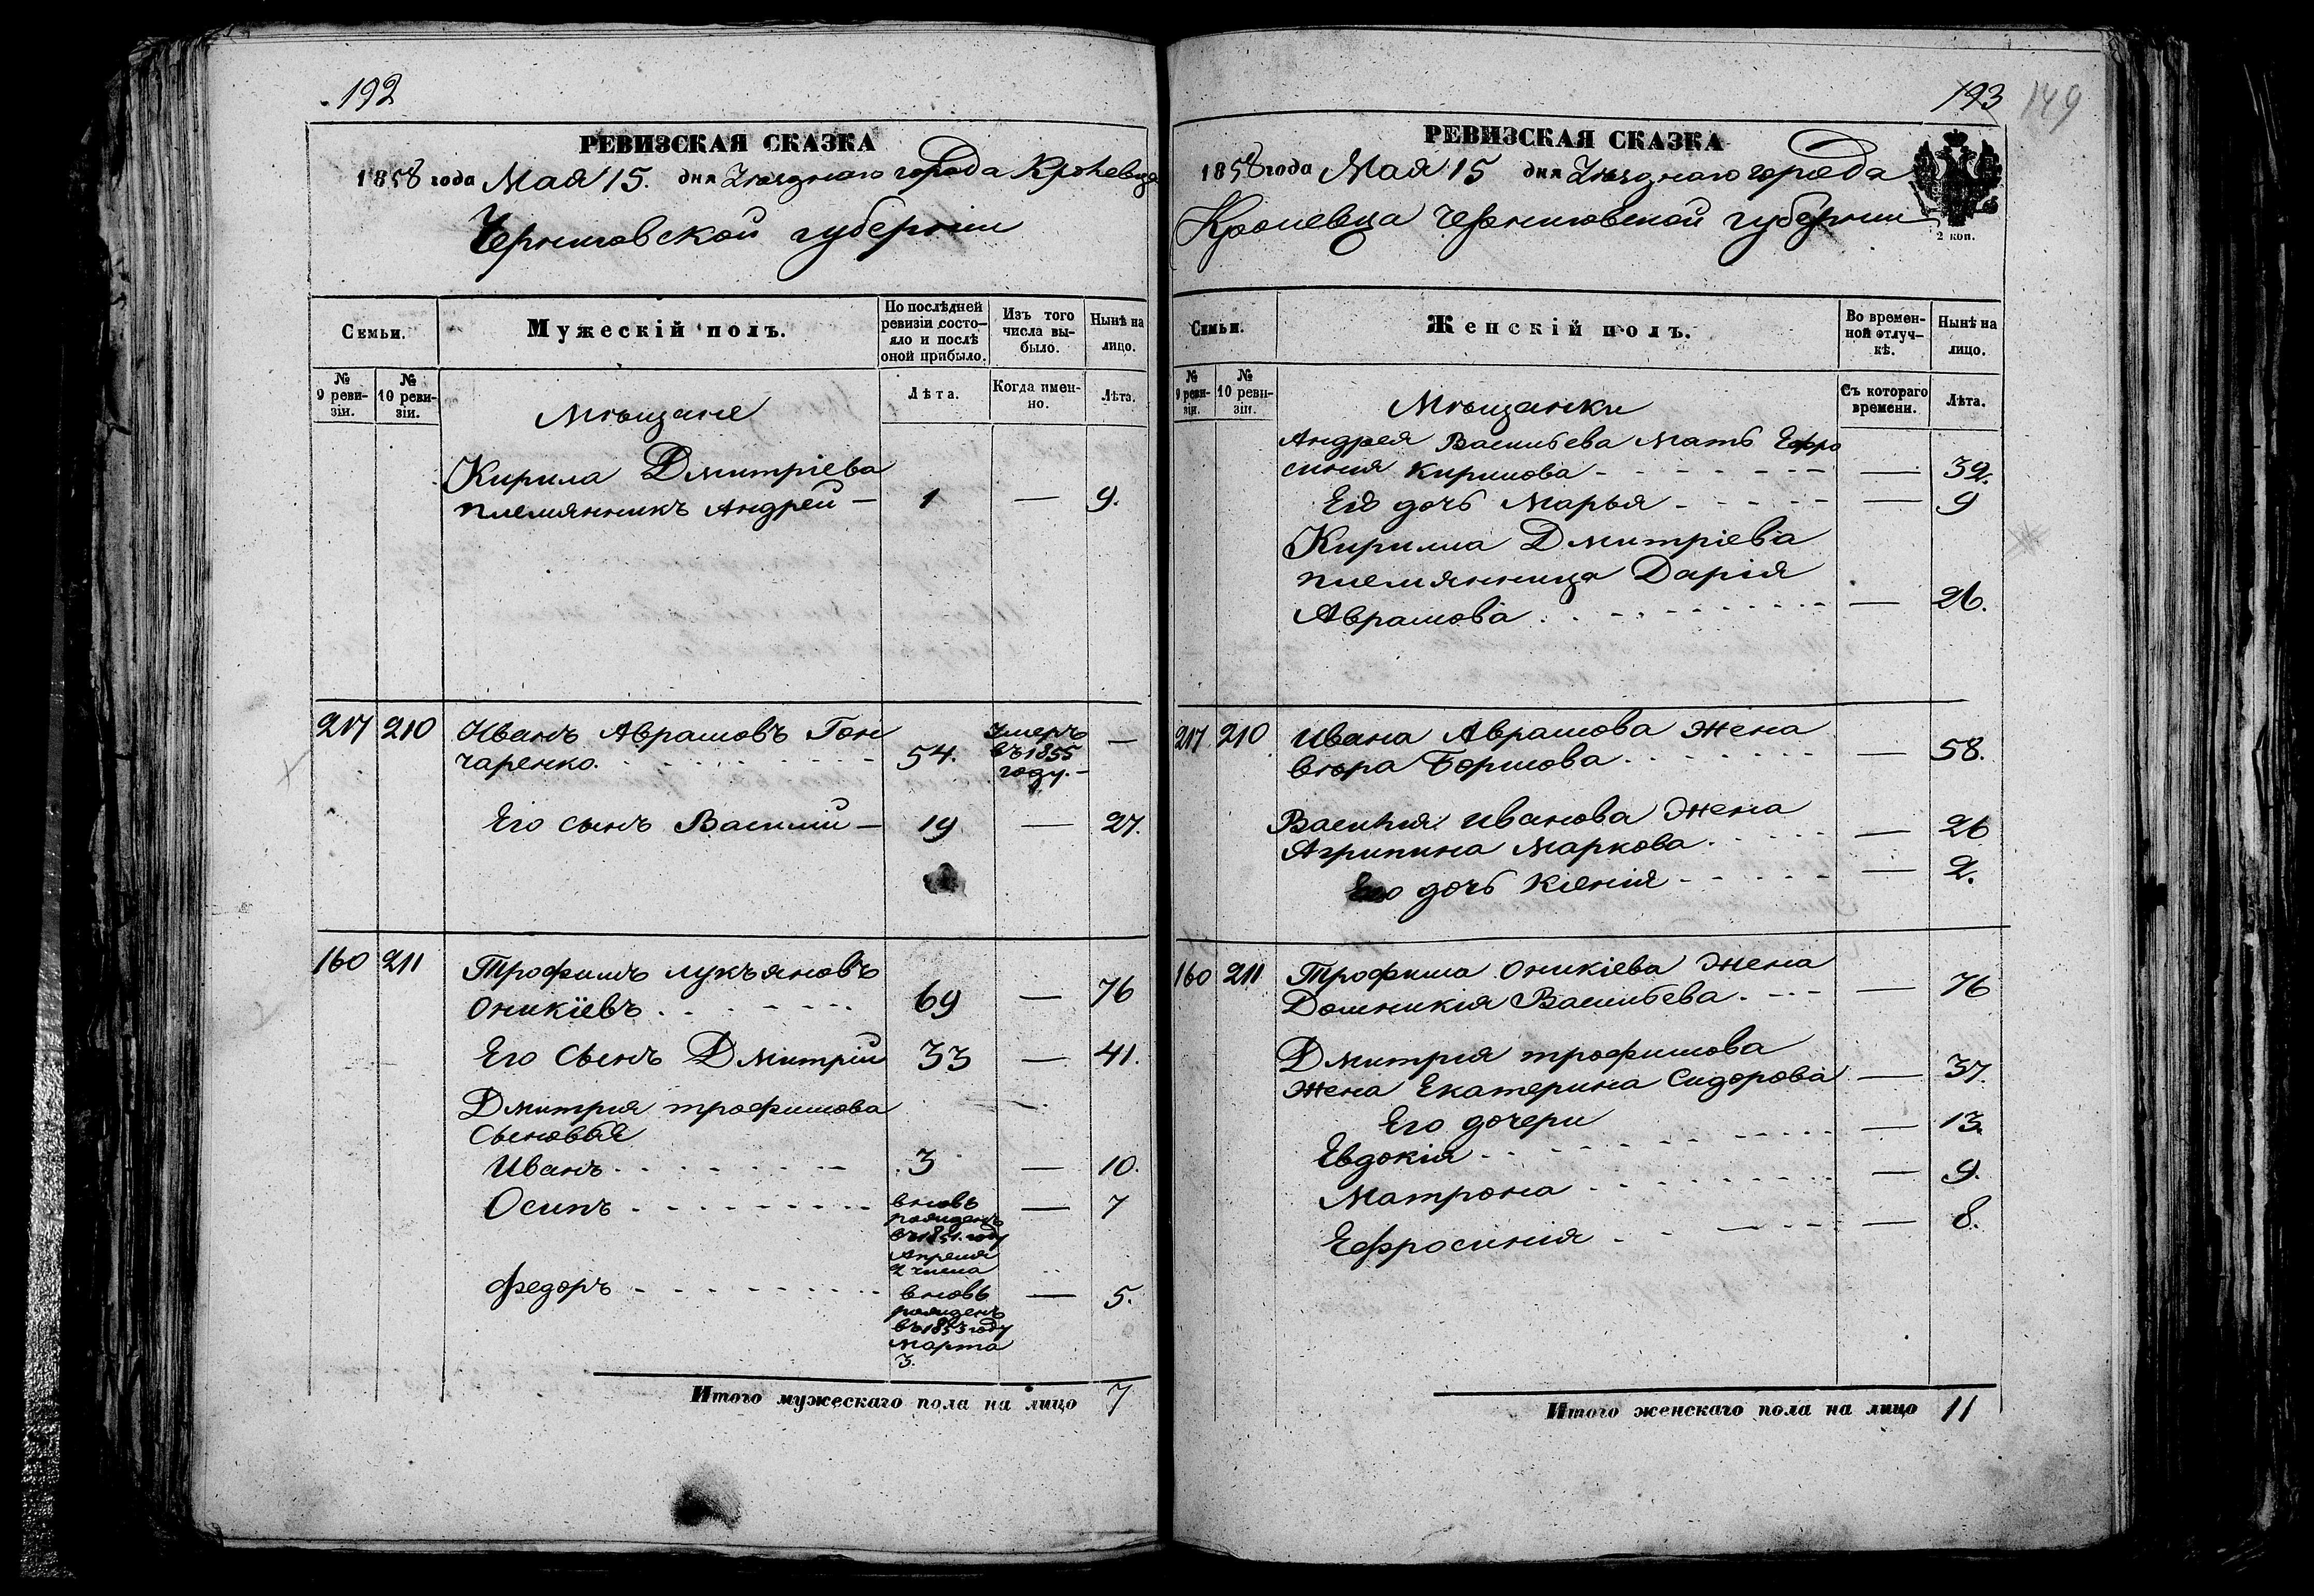 192
РЕВИЗСКАЯ СКАЗКА
1858 года Мая 15. дня Уѣзднаго города Кролевца
Черниговской губерніи
Семьи.
Мужескій полъ.
По послѣдней ревизіи состо-
яло и послѣ оной прибыло.
Изъ того числа вы-
было.
Нынѣ на лицо.
№ 9 реви-
зіи.
№ 10 реви-
зіи.
Лѣта.
Когда имен-
но.
Лѣта.
Мѣщане
Кирила Дмитріева
племянникъ Андрей — 1 — 9.
217 210 Иванъ Аврамовъ Гон
чаренко. 54. Умеръ
въ 1855
году. —
Его сынъ Василій — 19 — 27.
160 211 Трофимъ Лукьяновъ
Оникіевъ. 69 — 76
Его Сынъ Дмитрій 33 — 41.
Дмитрия трофимова
Сыновья
Иванъ. 3 — 10.
Осипъ. вновь — 7
рожденъ
въ 1851. году
Апреля
2 числа
Федоръ вновь — 5.
рожденъ
въ 1853 году
Марта
3.
Итого мужескаго пола на лицо 7
193 149
РЕВИЗСКАЯ СКАЗКА
1858 года Мая 15 дня Уѣзднаго города
Кролевца Черниговской губерніи
2 коп.
Семьи.
Женскій полъ.
Во времен-
ной отлуч-
кѣ.
Нынѣ на лицо.
№ 9 реви-
зіи.
№ 10 реви-
зіи.
Съ котораго времени.
Лѣта.
Мѣщанки
Андрея Васильева Мать Ефро
синия Кирилова — 32.
Его дочь Марья — 9
Кирилла Дмитріева
племянница Дарія
Аврамова — 26.
217 210 Ивана Аврамова Жена
вѣра Борисова — 58.
Василия Иванова Жена
Агрипина Маркова — 26
Его дочь Ксенія — 2.
160 211 Трофима Оникіева Жена
Домникія Васильева. — 76
Дмитрия трофимова
Жена Екатерина Сидорова — 37.
Его дочери
Евдокія — 13.
Матрона — 9.
Ефросинія — 8.
Итого женскаго пола на лицо 11